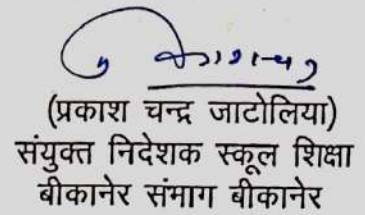 (प्रकाश चन्द्र जाटोलिया)
संयुक्त निदेशक स्कूल शिक्षा
बीकानेर संभाग बीकानेर